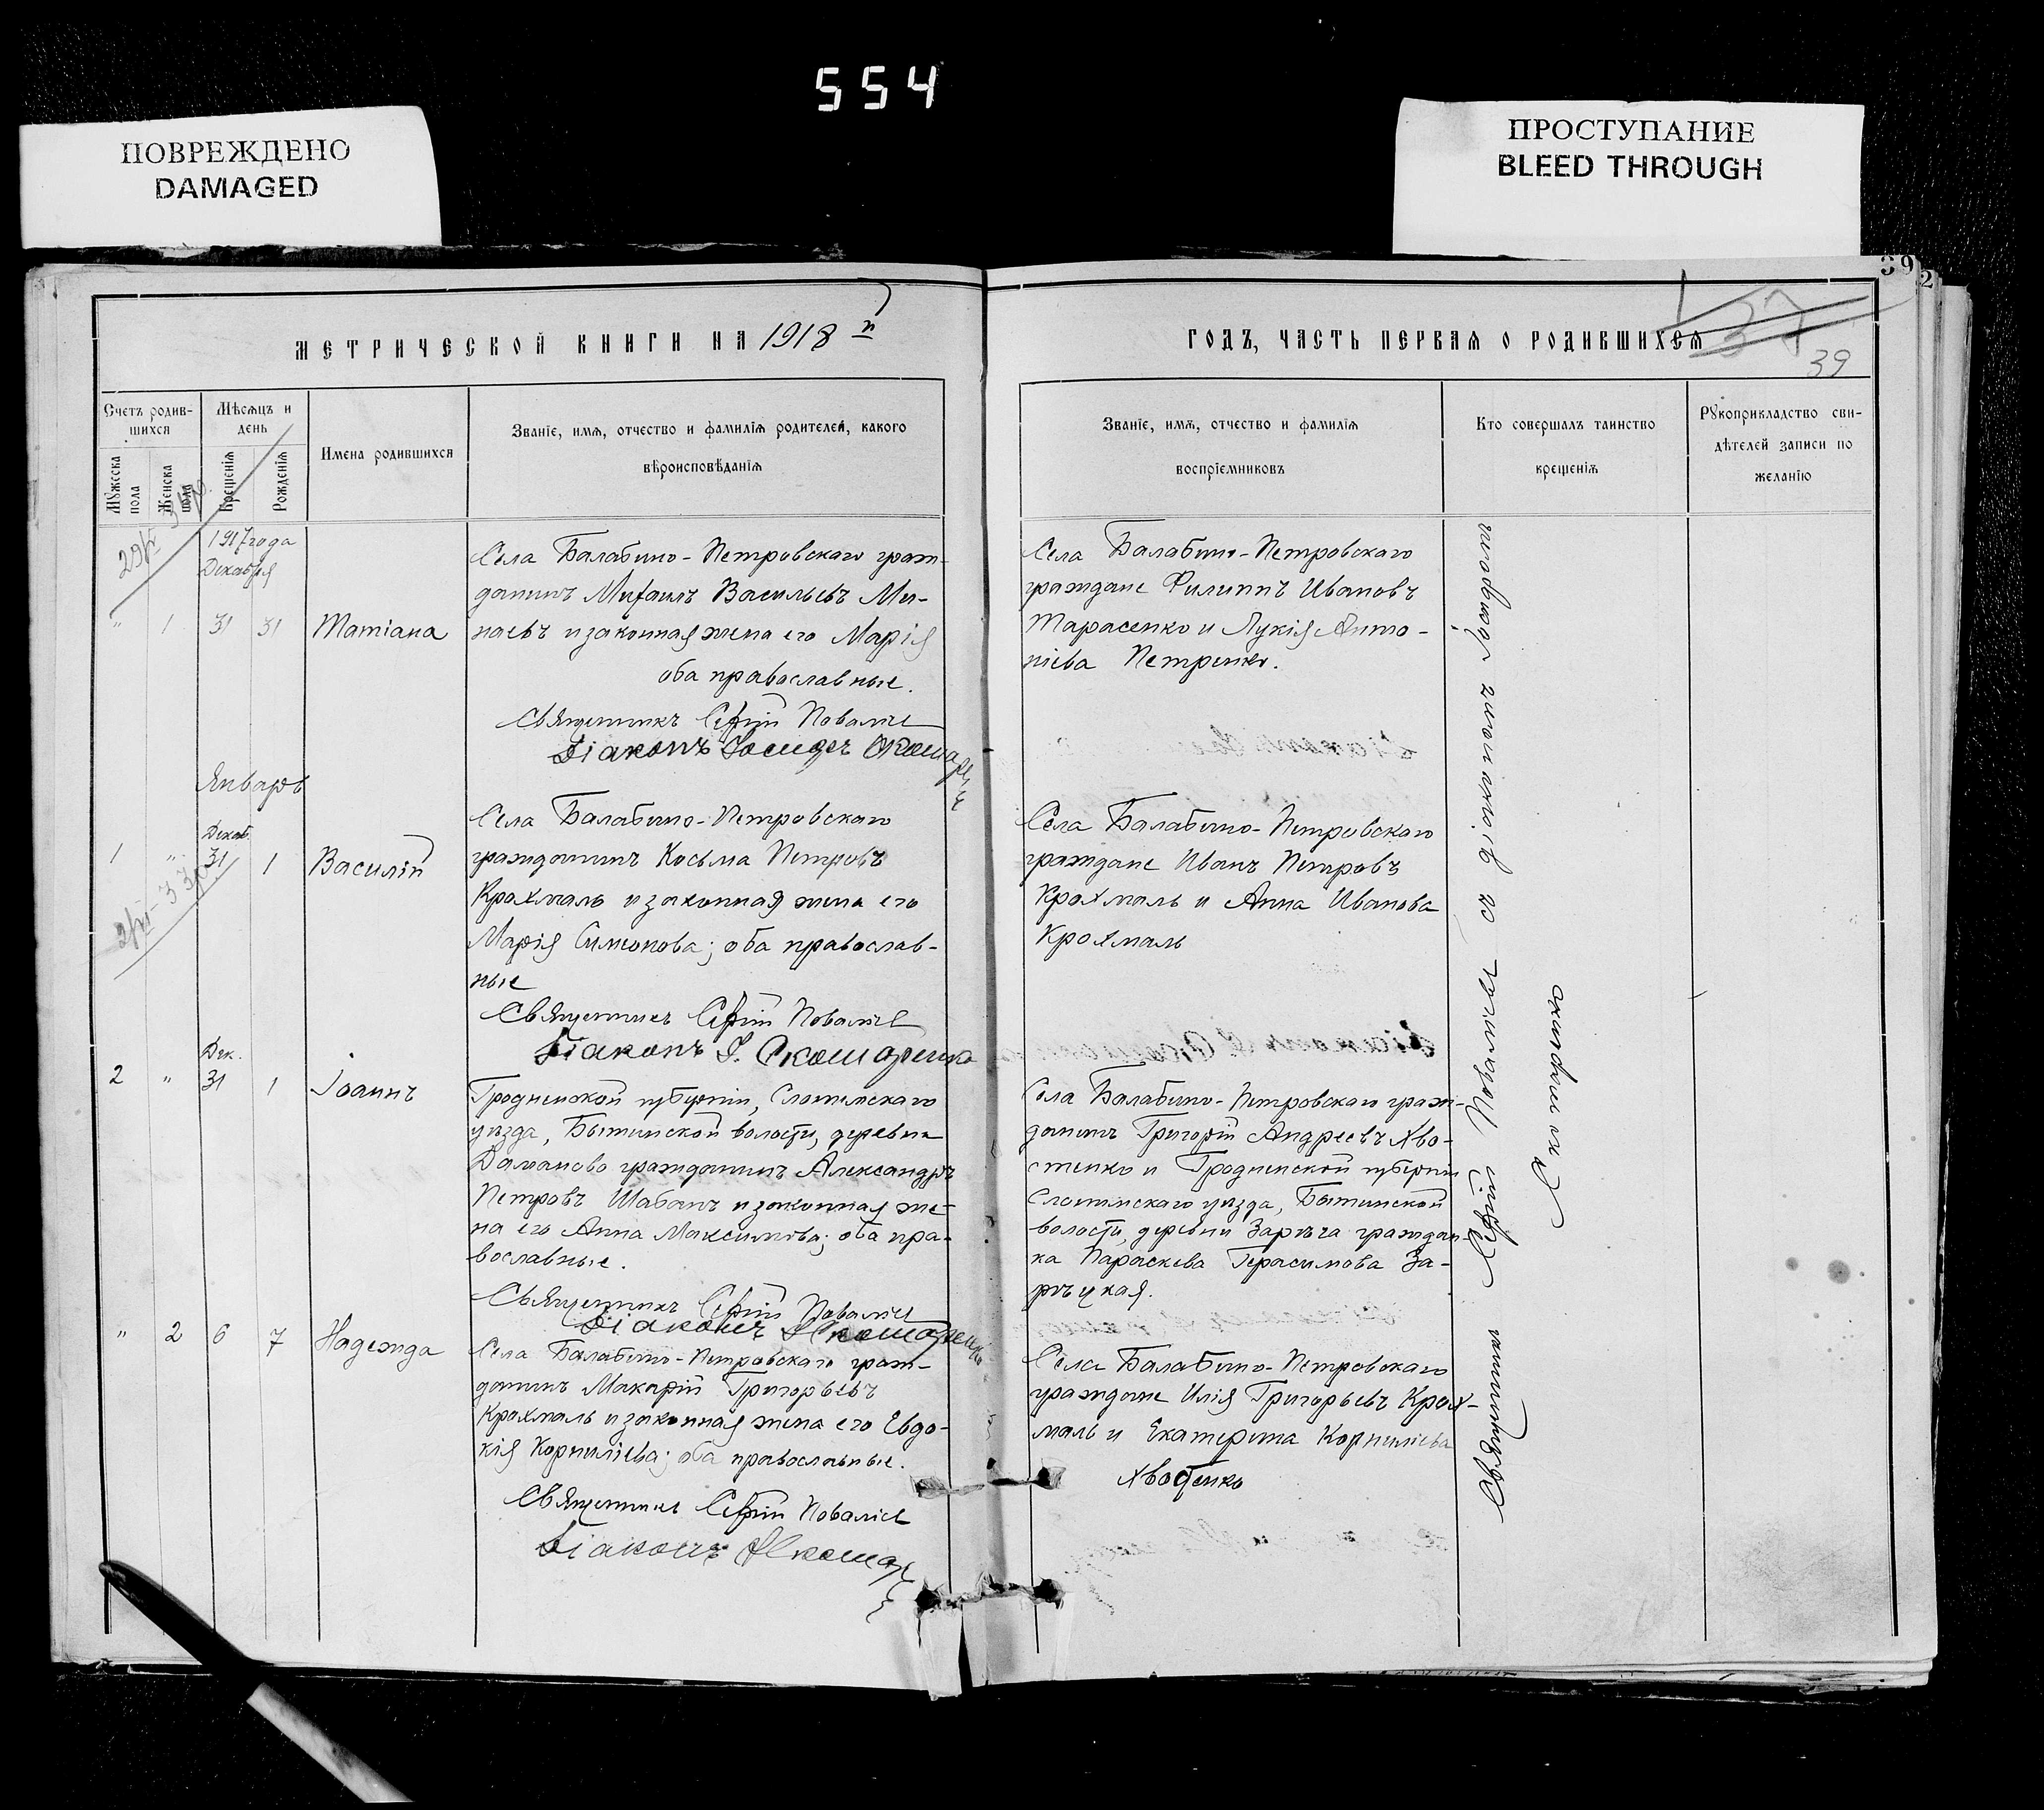 554
ПОВРЕЖДЕНО
DAMAGED
ПРОСТУПАНИЕ
BLEED THROUGH
392
МЕТРИЧЕСКОЙ КНИГИ НА 1918 й
ГОДЪ, ЧАСТЬ ПЕРВАЯ О РОДИВШИХСЯ
37
39
Счетъ родив-
шихся
Мужеска
пола
Женска
пола
Мѣсяцъ и
день
Крещенія
Рожденія
Имена родившихся
Званіе, имя, отчество и фамилія родителей, какого
вѣроисповѣданія
Званіе, имя, отчество и фамилія
воспріемниковъ
Кто совершалъ таинство
крещенія
Рукоприкладство сви-
дѣтелей записи по
желанію
1917 года
Декабря
" 1 31 31 Татіана
Села Балабино-Петровскаго граж-
данинъ Михаилъ Васильевъ Ми-
наевъ и законная жена его Марія
оба православные.
Священникъ Сергій Поваліев
Діаконъ Іосифъ Скомар
Села Балабино-Петровскаго
граждане Филиппъ Ивановъ
Тарасенко и Лукія Анто-
ніева Петренко.
Январь
Декаб.
1 " 31 1 Василій
Села Балабино-Петровскаго
гражданинъ Косьма Петровъ
Крохмаль и законная жена его
Марія Симонова; оба православ-
ные
Священникъ Сергій Поваліев
Діаконъ І. Скомаренко
Села Балабино-Петровскаго
граждане Иванъ Петровъ
Крохмаль и Анна Иванова
Крохмаль
Дек.
2 " 31 1 Іоаннъ
Гродненской губерніи, Слонимскаго
уѣзда, Бытинской волости, деревни
Даманово гражданинъ Александръ
Петровъ Шабанъ и законная же-
на его Анна Максимова; оба пра-
вославные.
Священникъ Сергій Поваліев
Діаконъ Скомаренко
Села Балабино-Петровскаго граж-
данинъ Григорій Андреевъ Хво-
стенко и Гродненской губерніи
Слонимскаго уѣзда, Бытинской
волости, деревни Зарѣча граждан-
ка Параскева Герасимова За-
рѣцкая.
" 2 6 7 Надежда
Села Балабино-Петровскаго граж-
данинъ Макарій Григорьевъ
Крохмаль и законная жена его Евдо-
кія Корниліева; оба православные.
Священникъ Сергій Поваліев
Діаконъ Скомар
Села Балабино-Петровскаго
граждане Илія Григорьевъ Крох-
маль и Екатерина Корниліева
Хвостенко
Священникъ Сергій Поваліев съ діакономъ Іосифомъ
Скомаренко